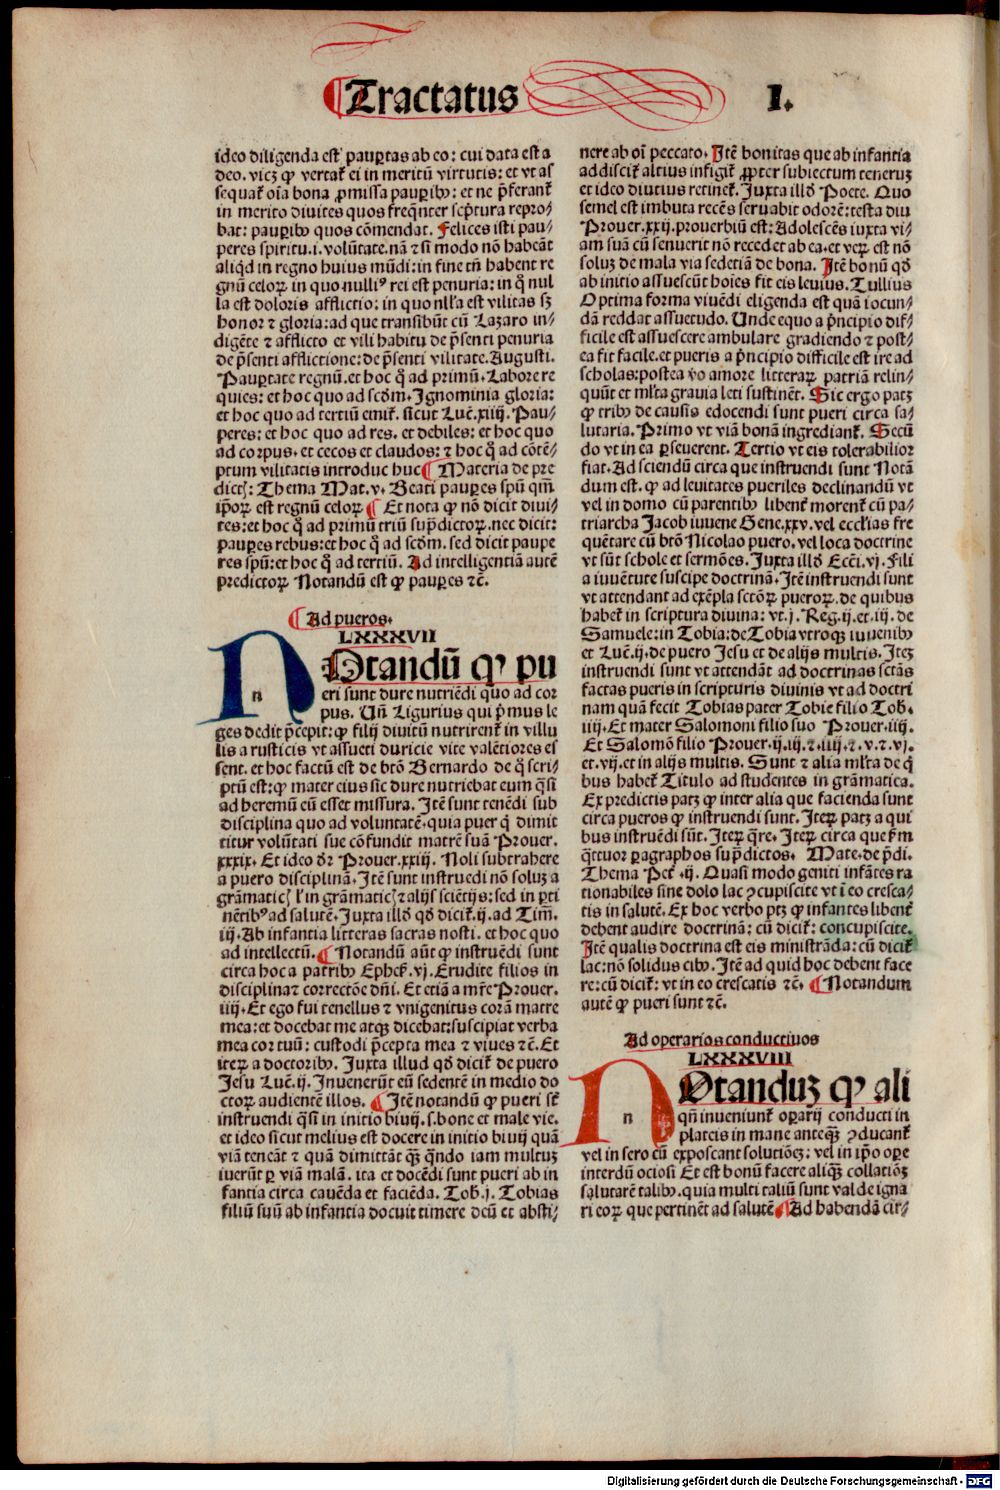 Tractatus
I.
ideo diligenda est paup̲tas ab eo: cui data est a
deo. vicꝫ ꝙ vertat̉ ei in meritū virtutis: et vt as
sequat̉ oīa bona ꝓmissa paup̲ibꝰ: et ne p̄ferant̉
in merito diuites quos freq̄nter sc̄ptura repro⸗
bat: paup̲ibꝰ quos cōmendat. Felices isti pau⸗
peres spiritu.i.volūtate.nā ⁊ si modo nō habeāt
aliqd in regno huius mūdi: in fine tn̄ habent re
gnū celoꝝ in quo nulliꝰ rei est penuria: in q̊ nul
la est doloris afflictio: in quo nll'a est vilitas sꝫ
honor ⁊ gloria: ad que transibūt cū Lazaro in⸗
digēte ⁊ afflicto et vili habitu de p̄senti penuria
de p̄senti afflictione: de p̄senti vilitate. Augusti.
Paup̲tate regnū. et hoc q̊ ad primū. Labore re
quies: et hoc quo ad scd̄m. Ignominia gloria:
et hoc quo ad tertiū emit̉. sicut Luč.xiiij. Pau⸗
peres: et hoc quo ad res. et debiles: et hoc quo
ad corpus. et cecos et claudos: ⁊ hoc q̊ ad cōtē⸗
ptum vilitatis introduc huc ¶ Materia de pre
dictꝭ: Thema Mat.v. Beati paup̲es spū qm̄
ip̄oꝝ est regnū celoꝝ ¶ Et nota ꝙ nō dicit diui⸗
tes: et hoc q̊ ad primū triū sup̄dictoꝝ. nec dicit:
paup̲es rebus: et hoc q̊ ad scd̄m. sed dicit paupe
res spū: et hoc q̊ ad tertiū. Ad intelligentiā autē
predictoꝝ Notandū est ꝙ paup̲es ⁊č.
¶ Ad pueros.
LXXXVII
n
NOtandū ꝙ pu
eri sunt dure nutriēdi quo ad cor
pus. Un̄ Ligurius qui p̄mus le
ges dedit p̄cepit: ꝙ filij diuitū nutrirent̉ in villu
lis a rusticis vt assueti duricie vite valētiores es
sent. et hoc factū est de btō Bernardo de q̊ scri⸗
ptū est: ꝙ mater eius sic dure nutriebat eum q̄si
ad heremū eū esset missura. Itē sunt tenēdi sub
disciplina quo ad voluntatē. quia puer q̇ dimit
titur volūtati sue cōfundit matrē suā Prouer.
xxxix. Et ideo dr̄ Prouer.xxiij. Noli subtrahere
a puero disciplinā. Itē sunt instruedi nō soluꝫ a
grāmaticꝭ l' in grāmaticꝭ ⁊ alijs sciētijs: sed in p̲ti
nētibꝰ ad salutē. Juxta illd̄ qd̄ dicit̉.ij. ad Tim̄.
iij. Ab infantia litteras sacras nosti. et hoc quo
ad intellectū. ¶ Notandū aūt ꝙ instruēdi sunt
circa hoc a patribꝰ Ephes̉.vj. Erudite filios in
disciplina ⁊ correctōe dn̄i. Et etiā a mr̄e Prouer.
iiij. Et ego fui tenellus ⁊ vnigenitus corā matre
mea: et docebat me atqꝫ dicebat: suscipiat verba
mea cor tuū: custodi p̄cepta mea ⁊ viues ⁊č. Et
iteꝝ a doctoribꝰ. Juxta illud qd̄ dicit̉ de puero
Jesu Luč.ij. Inuenerūt eū sedentē in medio do
ctoꝝ audientē illos. ¶ Itē notandū ꝙ pueri st̄
instruendi q̄si in initio biuij.s.bone et male vie.
et ideo sicut melius est docere in initio biuij quā
viā teneāt ⁊ quā dimittāt qꝫ qn̄do iam multuꝫ
iuerūt p̲ viā malā. ita et docēdi sunt pueri ab in
fantia circa cauēda et faciēda. Tob.j. Tobias
filiū suū ab infantia docuit timere deū et absti⸗
nere ab oī peccato. Itē bonitas que ab infantia
addiscit̉ altius infigit̉ ꝓpter subiectum teneruꝫ
et ideo diutius retinet̉. Juxta illd̄ Poete. Quo
semel est imbuta recēs seruabit odorē: testa diu
Prouer.xxij. prouerbiū est: Adolescēs iuxta vi⸗
am suā cū senuerit nō recedet ab ea. et veꝝ est nō
soluꝫ de mala via sed etiā de bona. Itē bonū qd̄
ab initio assuescūt hoīes fit eis leuius. Tullius
Optima forma viuēdi eligenda est quā iocun⸗
dā reddat assuetudo. Unde equo a p̄ncipio dif⸗
ficile est assuescere ambulare gradiendo ⁊ post⸗
ea fit facile. et pueris a p̄ncipio difficile est ire ad
scholas: postea ꝟo amore litteraꝝ patriā relin⸗
quūt et ml'ta grauia leti sustinēt. Sic ergo patꝫ
ꝙ tribꝰ de causis edocendi sunt pueri circa sa⸗
lutaria. Primo vt viā bonā ingrediant̉. Secū
do vt in ea ꝑseuerent. Tertio vt eis tolerabilior
fiat. Ad sciendū circa que instruendi sunt Notā
dum est. ꝙ ad leuitates pueriles declinandū vt
vel in domo cū parentibꝰ libent̉ morent̉ cū pa⸗
triarcha Jacob iuuene Gene.xxv. vel eccl'ias fre
quētare cū btō Nicolao puero. vel loca doctrine
vt sūt schole et sermōes. Juxta illd̄ Ecci̅.vj. Fili
a iuuētute suscipe doctrinā. Itē instruendi sunt
vt attendant ad exēpla sctōꝝ pueroꝝ. de quibus
habet̉ in scriptura diuina: vt.j. Reg.ij.et.iij. de
Samuele: in Tobia: de Tobia vtroqꝫ iuuenibꝰ
et Luč.ij. de puero Jesu et de alijs multis. Iteꝫ
instruendi sunt vt attendāt ad doctrinas sctās
factas pueris in scripturis diuinis vt ad doctri
nam quā fecit Tobias pater Tobie filio Tob.
iiij. Et mater Salomoni filio suo Prouer.iiij.
Et Salomō filio Prouer.ij.iij.⁊.iiij.⁊.v.⁊.vj.
et.vij. et in alijs multis. Sunt ⁊ alia ml'ta de q̇
bus habet̉ Titulo ad studentes in grāmatica.
Ex predictis patꝫ ꝙ inter alia que facienda sunt
circa pueros ꝙ instruendi sunt. Iteꝝ patꝫ a qui
bus instruēdi sūt. Iteꝝ q̄re. Iteꝝ circa que ẜm
q̄ttuor p̲agraphos sup̄dictos. Mate. de p̄di.
Thema Pet̉.ij. Quasi modo geniti infātes ra
tionabiles sine dolo lac ꝯcupiscite vt ī eo cresca⸗
tis in salutē. Ex hoc verbo ptꝫ ꝙ infantes libent̉
debent audire doctrinā: cū dicit̉: concupiscite.
Itē qualis doctrina est eis ministrāda: cū dicit̉
lac: nō solidus cibꝰ. Itē ad quid hoc debent face
re: cū dicit̉: vt in eo crescatis ⁊č. ¶ Notandum
autē ꝙ pueri sunt ⁊č.
Ad operarios conductiuos
LXXXVIII
n
NOtanduꝫ ꝙ ali
qn̄ inueniunt̉ op̲arij conducti in
plateis in mane anteqꝫ ꝯducant̉
vel in sero cū exposcant solutiōeꝫ: vel in ip̄o op̲e
interdū ociosi Et est bonū facere aliqꝫ collatiōꝫ
salutarē talibꝰ. quia multi taliū sunt valde igna
ri eoꝝ que pertinēt ad salutē ¶ Ad habendā cir⸗
Digitalisierung gefördert durch die Deutsche Forschungsgemeinschaft - DFG